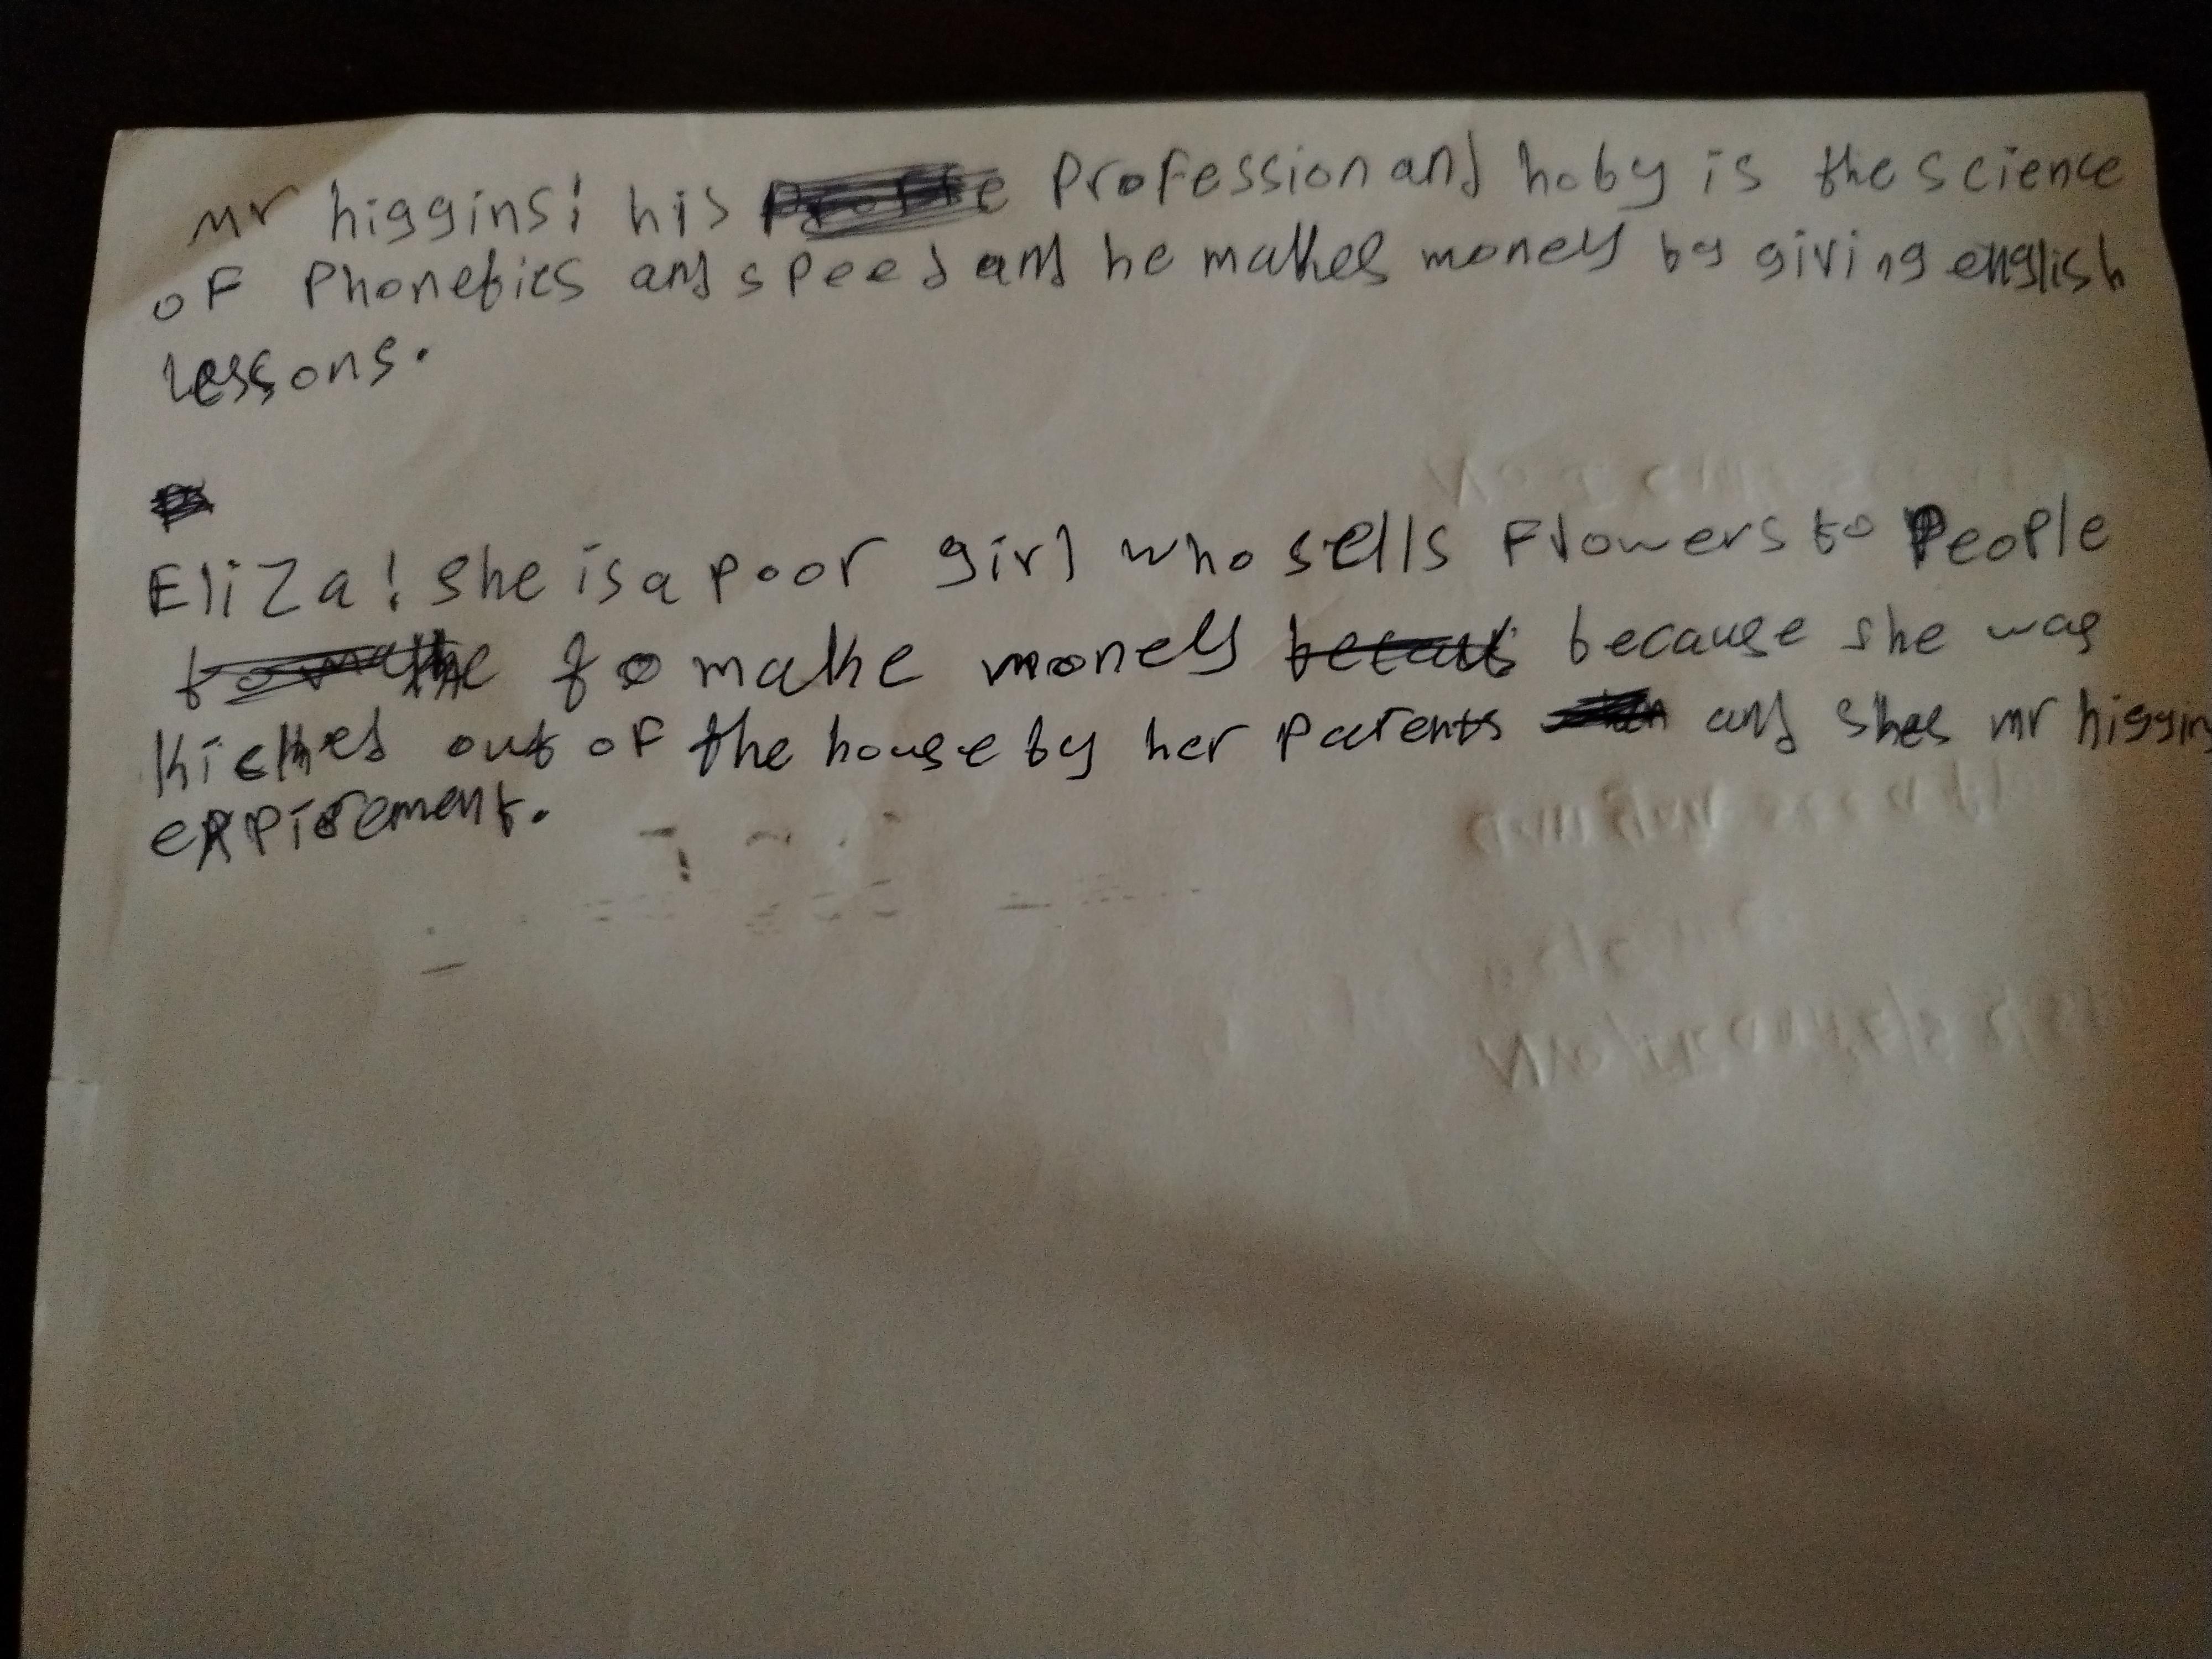 mr higgins: his Profession and hoby is the science
of Phonetics and speed and he makes money by giving english
lessons.
Eliza: she is a poor girl who sells Flowers to People
to make money because she was
kicked out of the house by her parents and shes mr higgins
expirement.